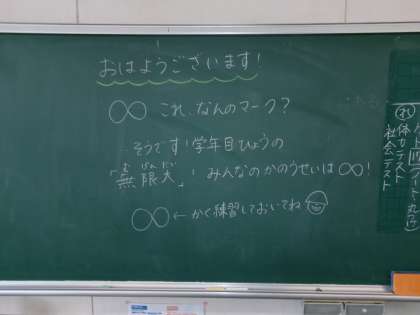 おはようございます！
∞ これ、なんのマーク？
そうです！学年目ひょうの
「無限大」！みんなのかのうせいは∞！
むげんだい
∞←かく練習しておいてね
体力テスト
社会テスト